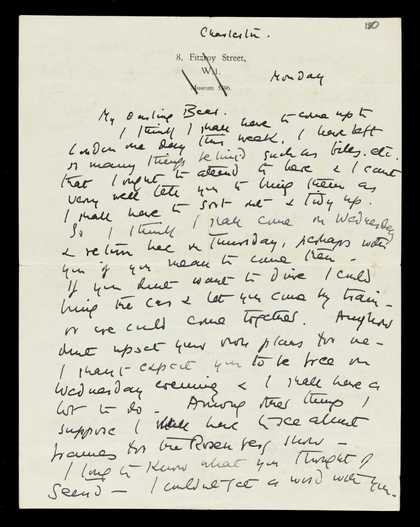 180
Charleston.
8, Fitzroy Street,
W.1.
Museum
Monday
My Darling Bear.
I think I shall have to come up to
London one day this week. I have left
so many things behind such as bills. etc.
that I ought to attend to here & I can't
very well tell you to bring them as
I shall have to sort out & tidy up.
So I think I shall come on Wednesday
& return here on Thursday, perhaps with
you if you mean to come then -
If you dont want to drive I could
bring the car & let you come by train -
or we could come together. Anyhow
dont upset your own plans for me -
I shan't expect you to be free on
Wednesday evening & I shall have a
lot to do - Among other things I
suppose I shall have to see about
frames for the Rosenberg show -
I long to know what you thought of
Seend - I couldn't get a word with you -